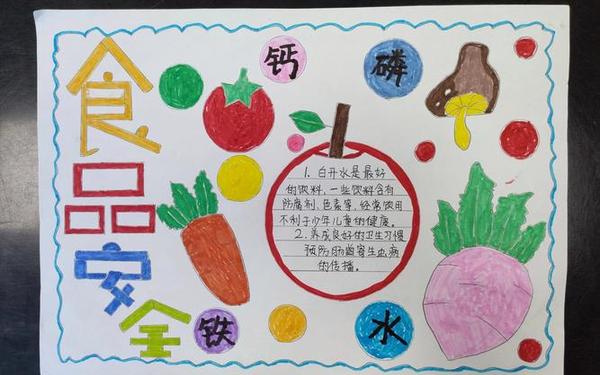 食
品
安
全
钙
磷
1. 白开水是最好
的饮料，一些饮料含有
防腐剂、色素等，经常饮用
不利于少年儿童的健康。
2. 养成良好的卫生习惯
预防肠道寄生虫病
的传播。
铁
水